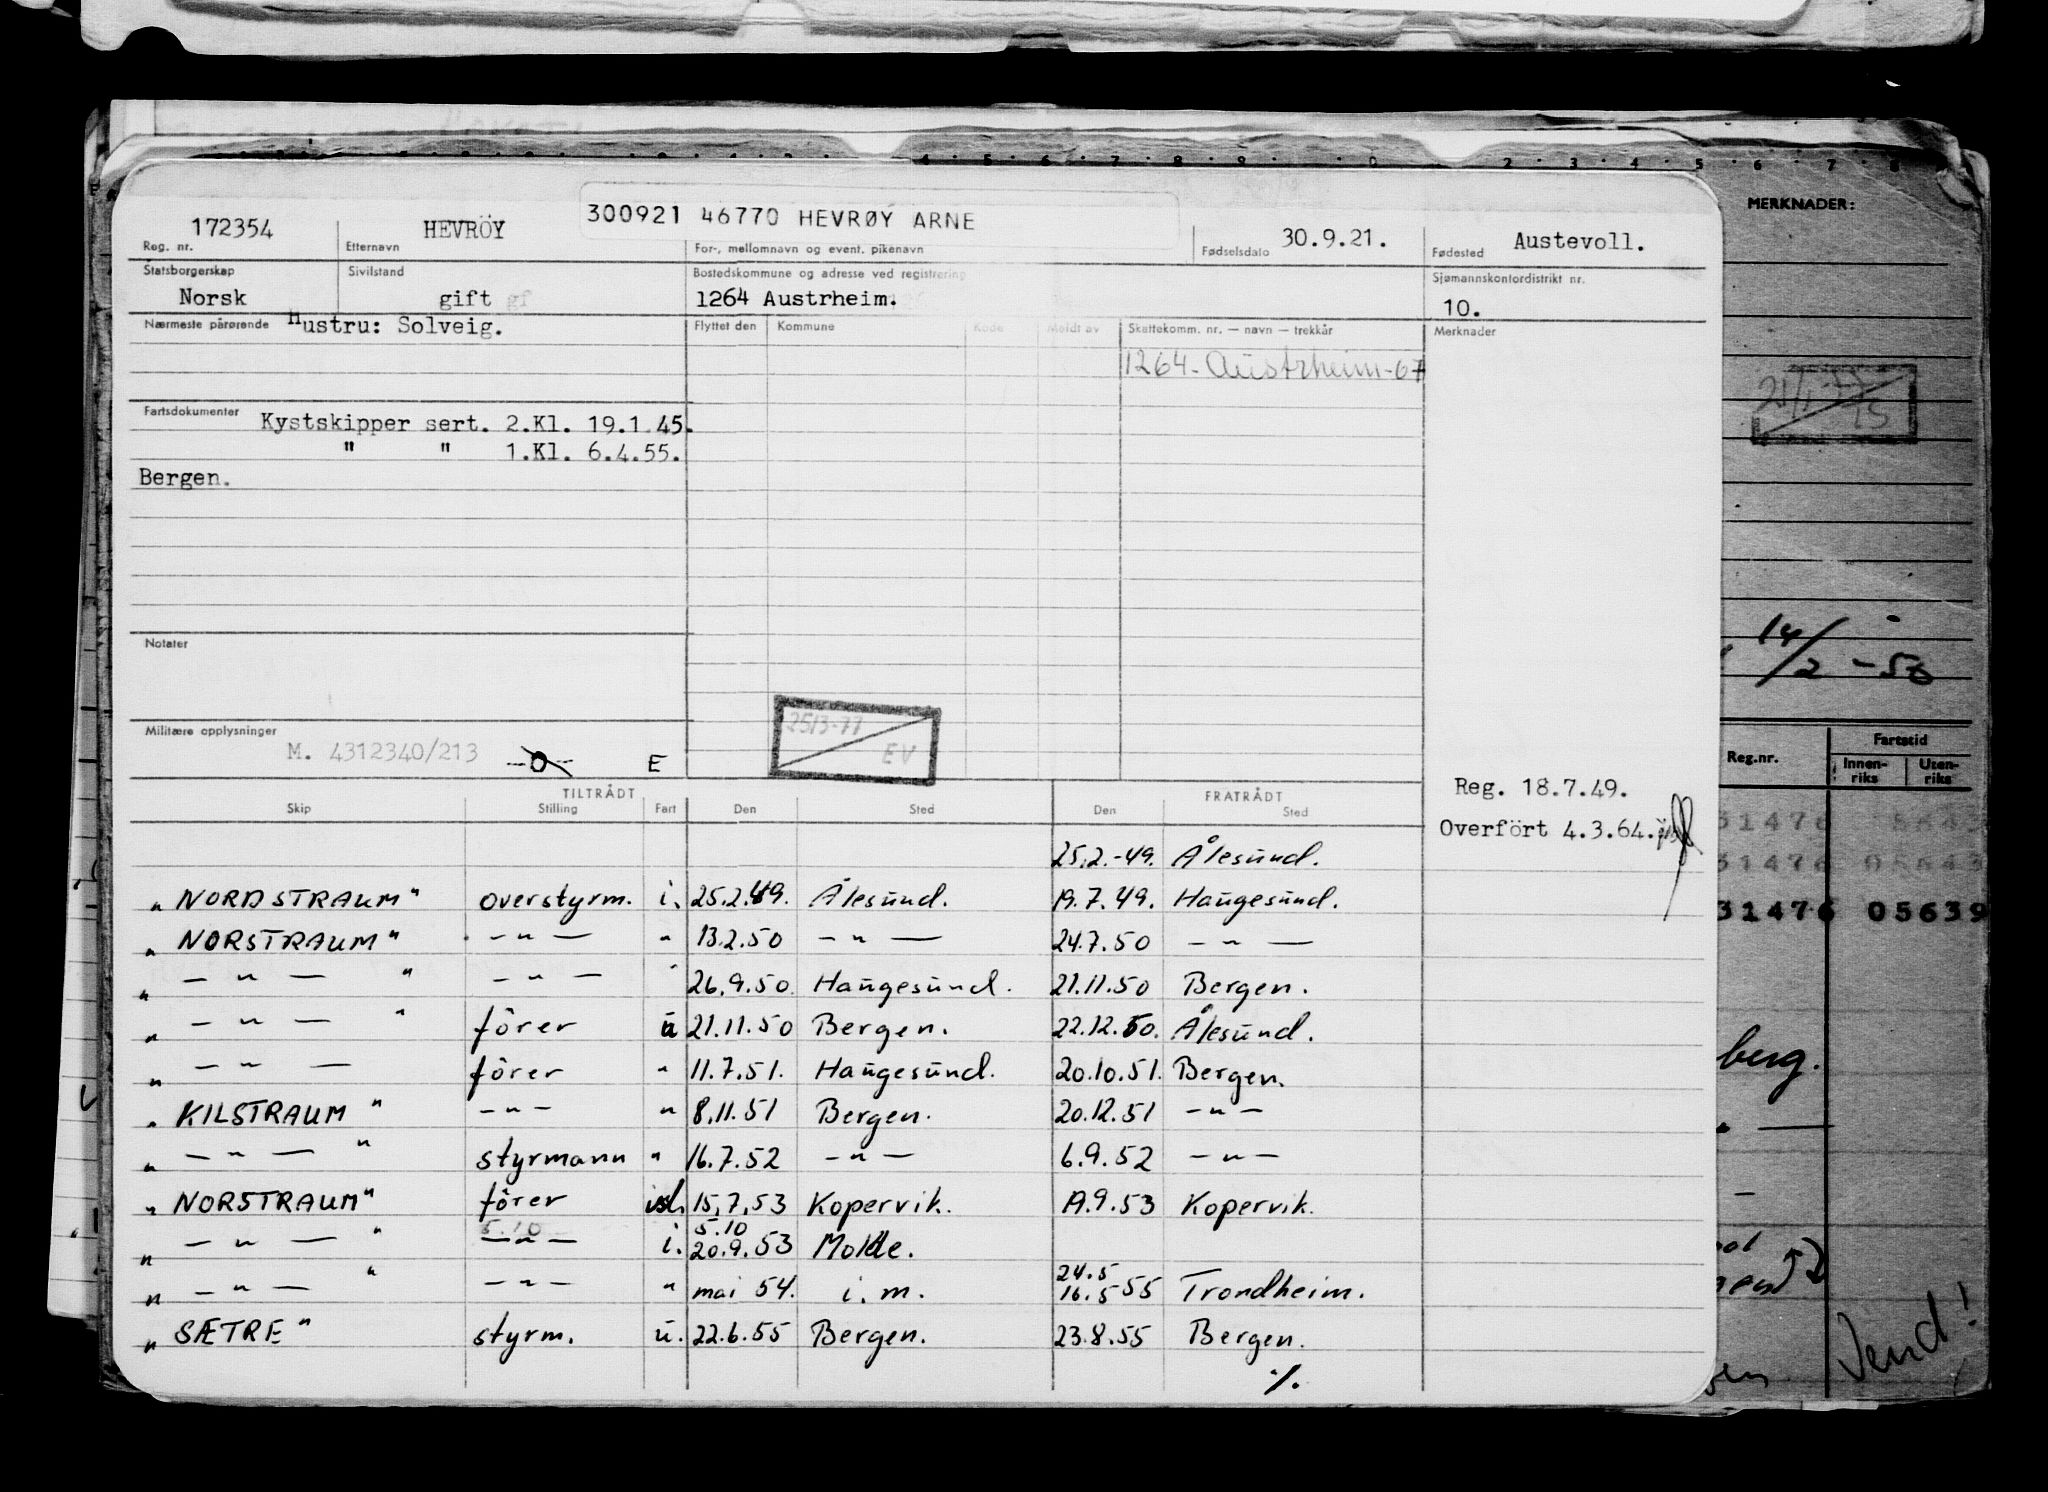 172354 HEVRÖY 300921 46770 HEVRØY ARNE 30.9.21. Austevoll.
Reg. nr. Etternavn For-, mellomnavn og event. pikenavn Fødselsdato Fødested
Statsborgerskap Sivilstand Bostedskommune og adresse ved registrering Sjømannskontordistrikt nr.
Norsk gift 1264 Austrheim. 10.
Nærmeste pårørende Hustru: Solveig. Flyttet den Kommune Kode Meldt av Skattekomm. nr. — navn — trekkår Merknader
1264 - Austrheim - 67
Fartsdokumenter Kystskipper sert. 2.Kl. 19.1.45.
" " 1.Kl. 6.4.55.
Bergen.
Notater
25/3-77
EV
Militære opplysninger M. 4312340/213 -0- E
Reg. 18.7.49.
Overfört 4.3.64.
TILTRÅDT FRATRÅDT
Skip Stilling Fart Den Sted Den Sted
25.2.-49. Ålesund.
" NORDSTRAUM " overstyrm. i. 25.2.49. Ålesund. 19.7.49. Haugesund.
" NORSTRAUM " — " — " 13.2.50 — " — 24.7.50 — " —
" — " — " — " — " 26.9.50. Haugesund. 21.11.50 Bergen.
" — " — " förer u 21.11.50 Bergen. 22.12.50. Ålesund.
" — " — förer " 11.7.51. Haugesund. 20.10.51. Bergen.
" KILSTRAUM " — " — " 8.11.51 Bergen. 20.12.51 — " —
" — " — " styrmann " 16.7.52 — " — 6.9.52 — " —
" NORSTRAUM " förer 15.7.53 Kopervik. 19.9.53 Kopervik.
5.10 5.10
" — " — " — " — i. 20.9.53 Molde.
24.5
" — " — " — " — " mai 54. i. m. 16.5 55 Trondheim.
" SÆTRE " styrm. u. 22.6.55 Bergen. 23.8.55 Bergen.
./.
MERKNADER:
14/2 - 56
Reg.nr. Fartstid
Innen-riks Uten-riks
31476 05643
31476 05643
31476 05639
berg.
Vend!